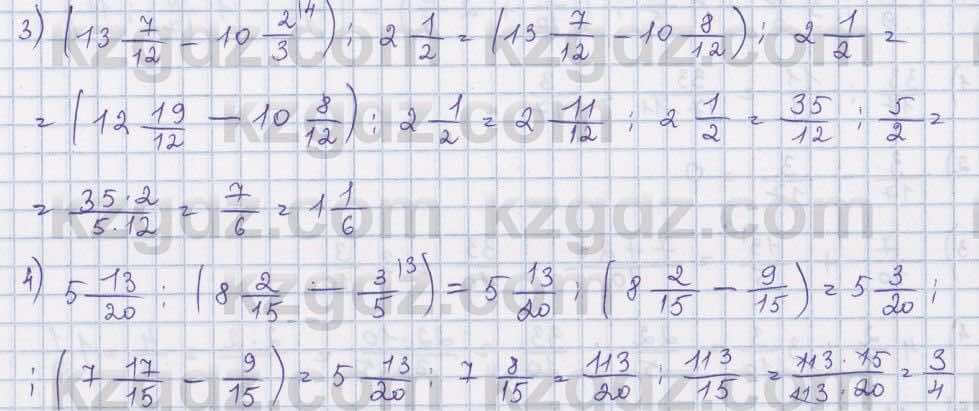 3) (13 7/12 - 10 2/3 |4) : 2 1/2 = (13 7/12 - 10 8/12) : 2 1/2 =
= (12 19/12 - 10 8/12) : 2 1/2 = 2 11/12 : 2 1/2 = 35/12 : 5/2 =
= 35·2/5·12 = 7/6 = 1 1/6
4) 5 13/20 : (8 2/15 - 3/5 |3) = 5 13/20 : (8 2/15 - 9/15) = 5 3/20 :
: (7 17/15 - 9/15) = 5 13/20 : 7 8/15 = 113/20 : 113/15 = 113·15/113·20 = 3/4
kzgdz.com kzgdz.com
kzgdz.com kzgdz.com
kzgdz.com kzgdz.com
kzgdz.com kzgdz.com